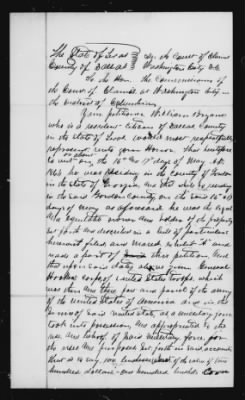 The State of Texas } In the Court of Claims
County of Dallas } Washington City D.C.
To the Hon. the Commissioners of
the Court of Claims at Washington City in
the District of Columbia
Your petitioner William Bryant
who is a resident citizen of Dallas County
in the state of Texas would most respectfully
represent unto your Honors that heretofore
to wit on or about the 15th or 17th day of May A.D.
1864 he was residing in the County of Gordon
in the State of Georgia, and that while so residing
in the said Gordon County on the said 15 or 17
days of May as aforesaid he was the legal
and equitable owner and holder of the property
set forth and described in a bill of particulars
hereunto filed and marked exhibit "A" and
made a part of this petition, and
that upon said dates General
Hookers corps of United States troops which
was then and there for and a part of the army
of the United States of America and in the
service of said United States, as a military force
took into possession and appropriated to the
use and behoof of said military force, for
the uses and purposes set forth in said account
that is to say, 100 of the value of two
hundred dollars - one hundred bushels Corn